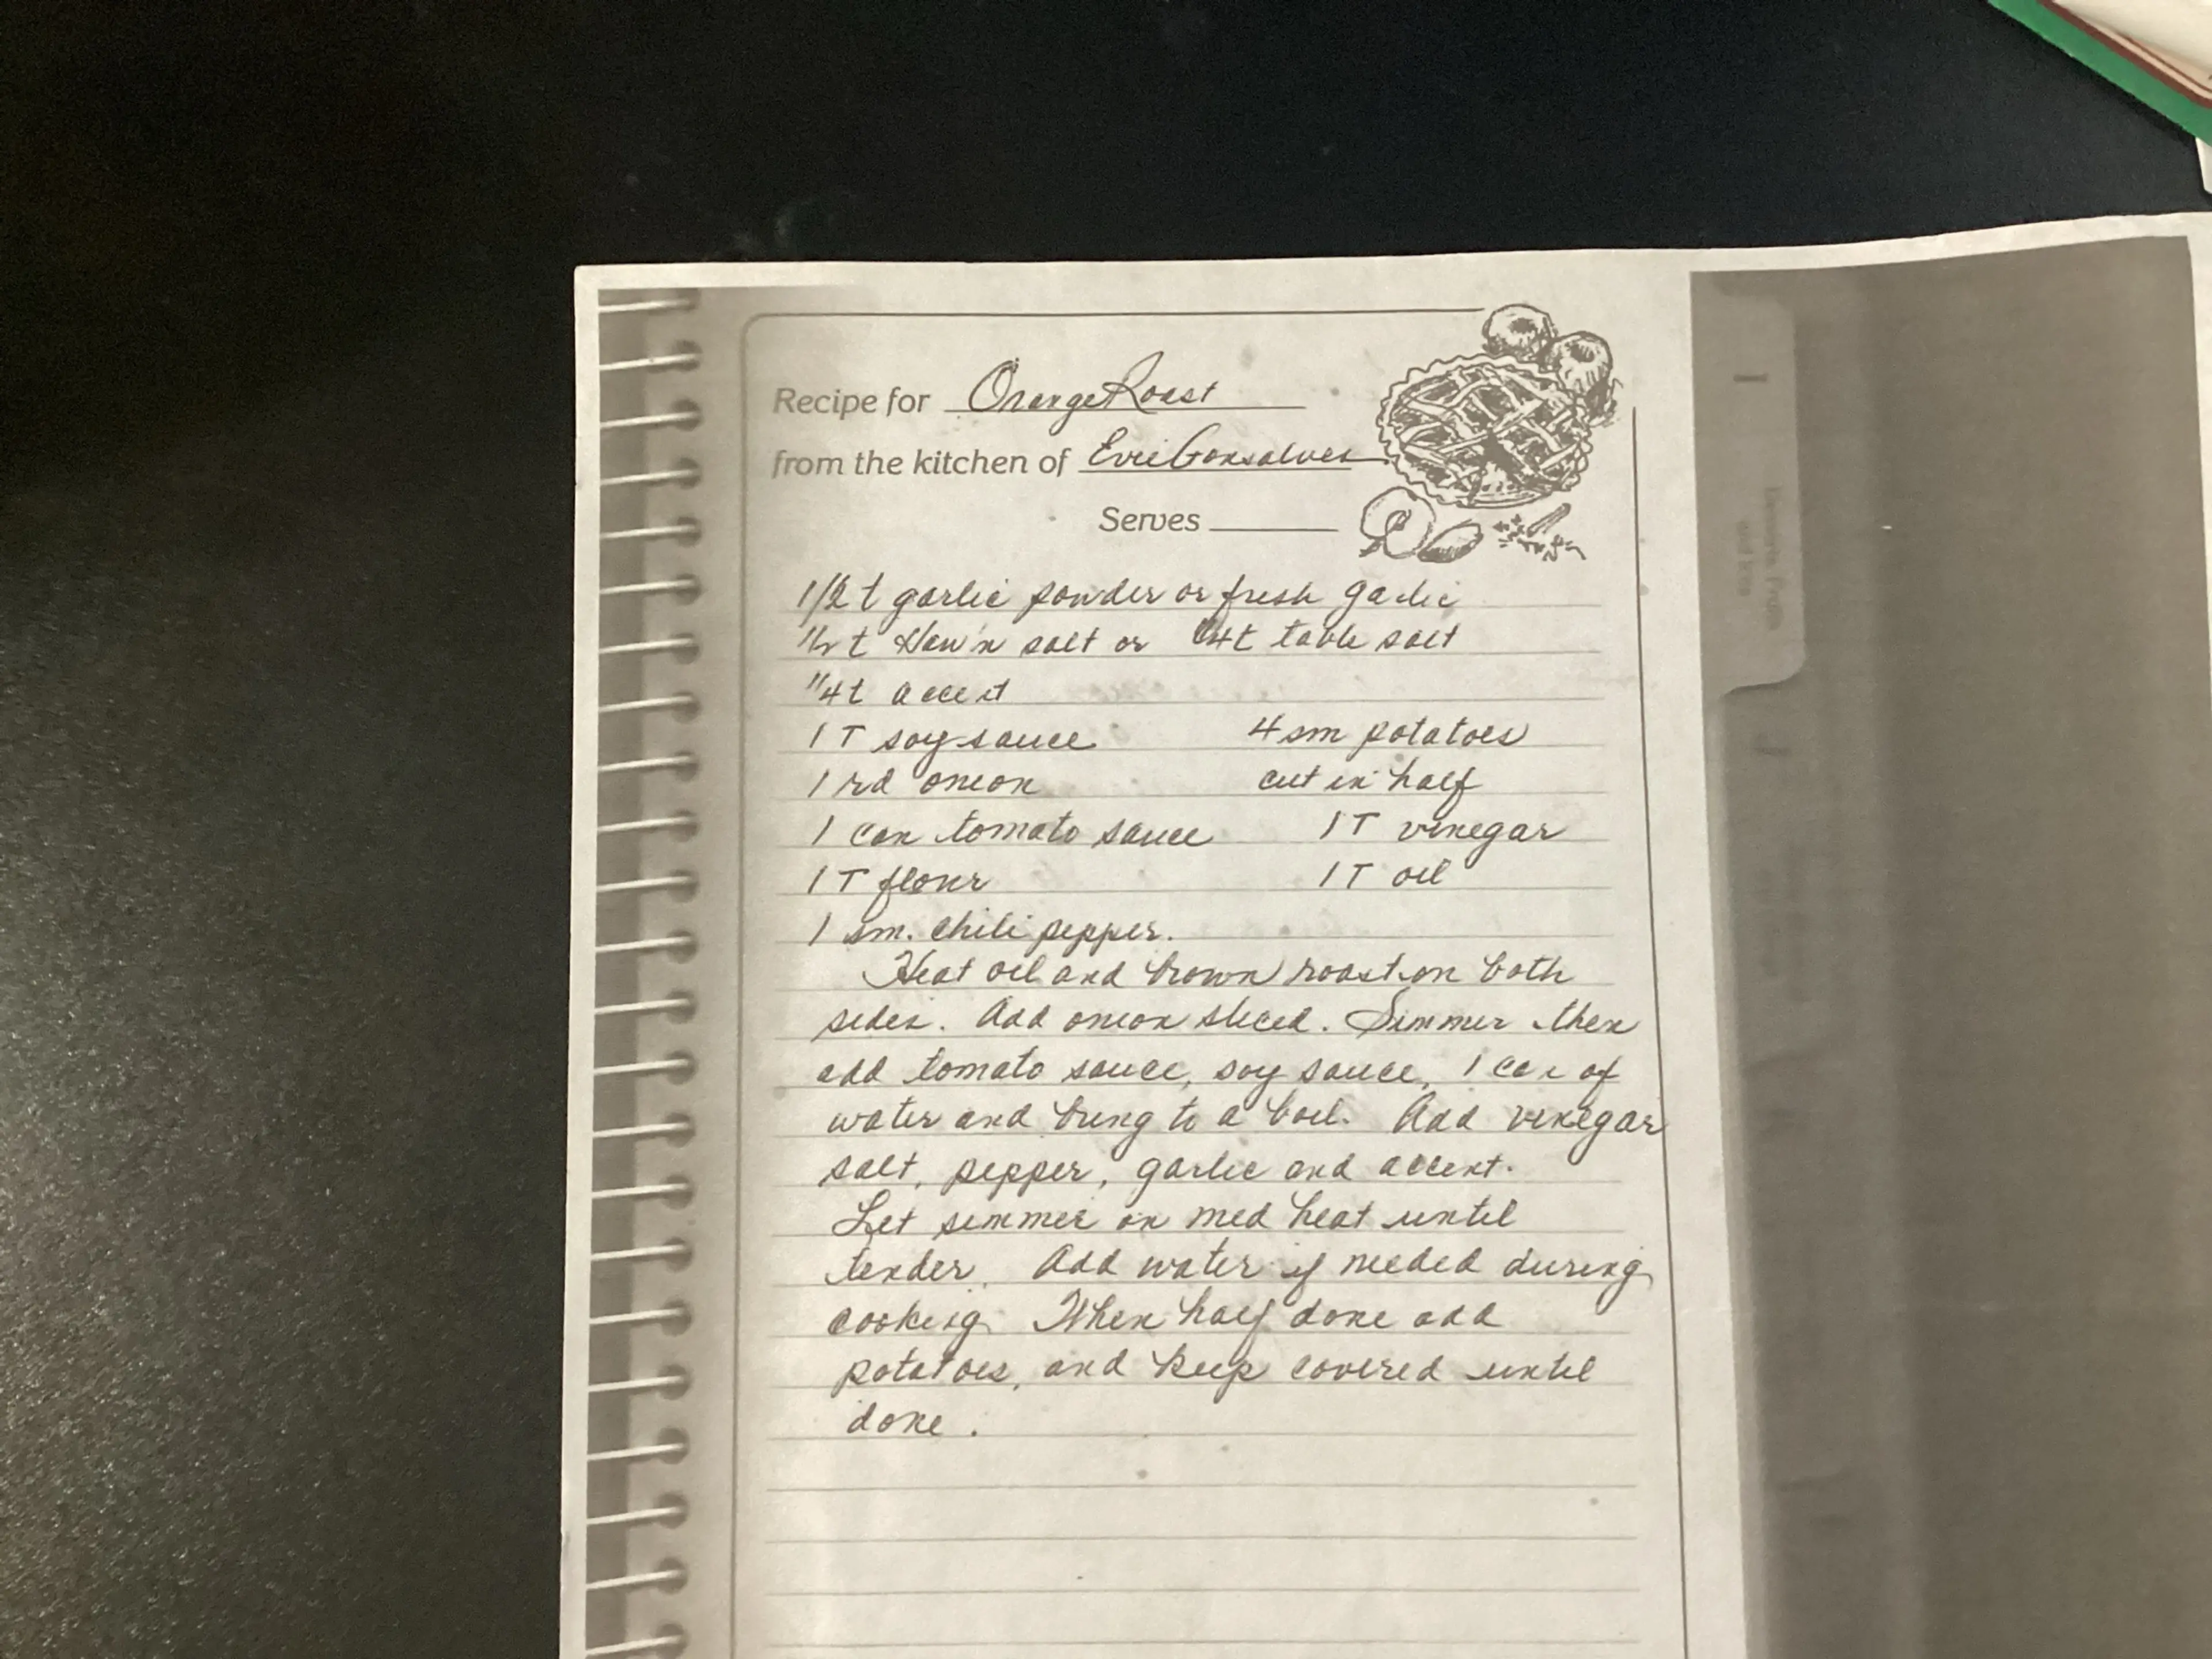 Recipe for Orange Roast
from the kitchen of Evie Gonsalves
Serves
1/2 t garlic powder or fresh garlic
1/2 t Haw'n salt or 1/4 t table salt
1/4 t accent
1 T soy sauce 4 sm potatoes
1 rd onion cut in half
1 can tomato sauce 1 T vinegar
1 T flour 1 T oil
1 sm. chili pepper.
Heat oil and brown roast on both
sides. Add onion sliced. Simmer then
add tomato sauce, soy sauce, 1 can of
water and bring to a boil. Add vinegar
salt, pepper, garlic and accent.
Let simmer on med heat until
tender. Add water if needed during
cooking. When half done add
potatoes, and keep covered until
done.